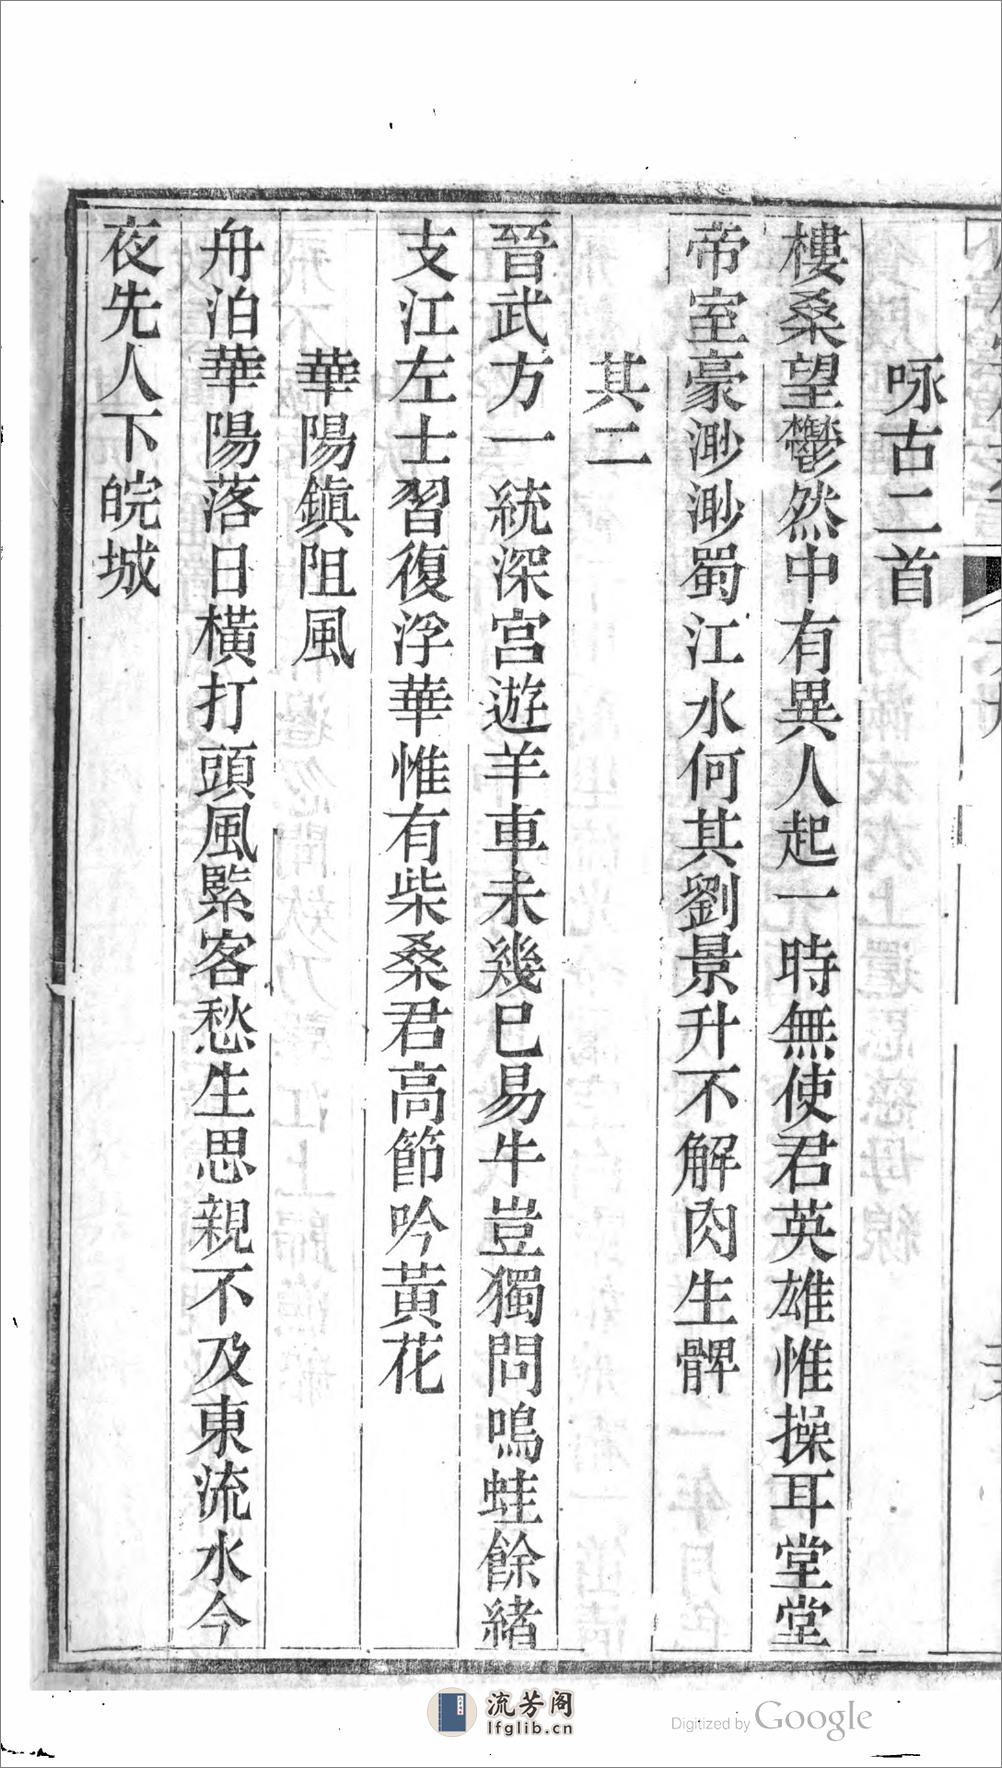 咏古二首
樓桑望鬱然中有異人起一時無使君英雄惟操耳堂堂
帝室豪渺渺蜀江水何其劉景升不解肉生髀
其二
晉武方一統深宮遊羊車未幾已易牛豈獨問鳴蛙餘緒
支江左士習復浮華惟有柴桑君高節吟黃花
華陽鎮阻風
舟泊華陽落日橫打頭風緊客愁生思親不及東流水今
夜先人下皖城
流芳阁
lfglib.cn
Digitized by Google